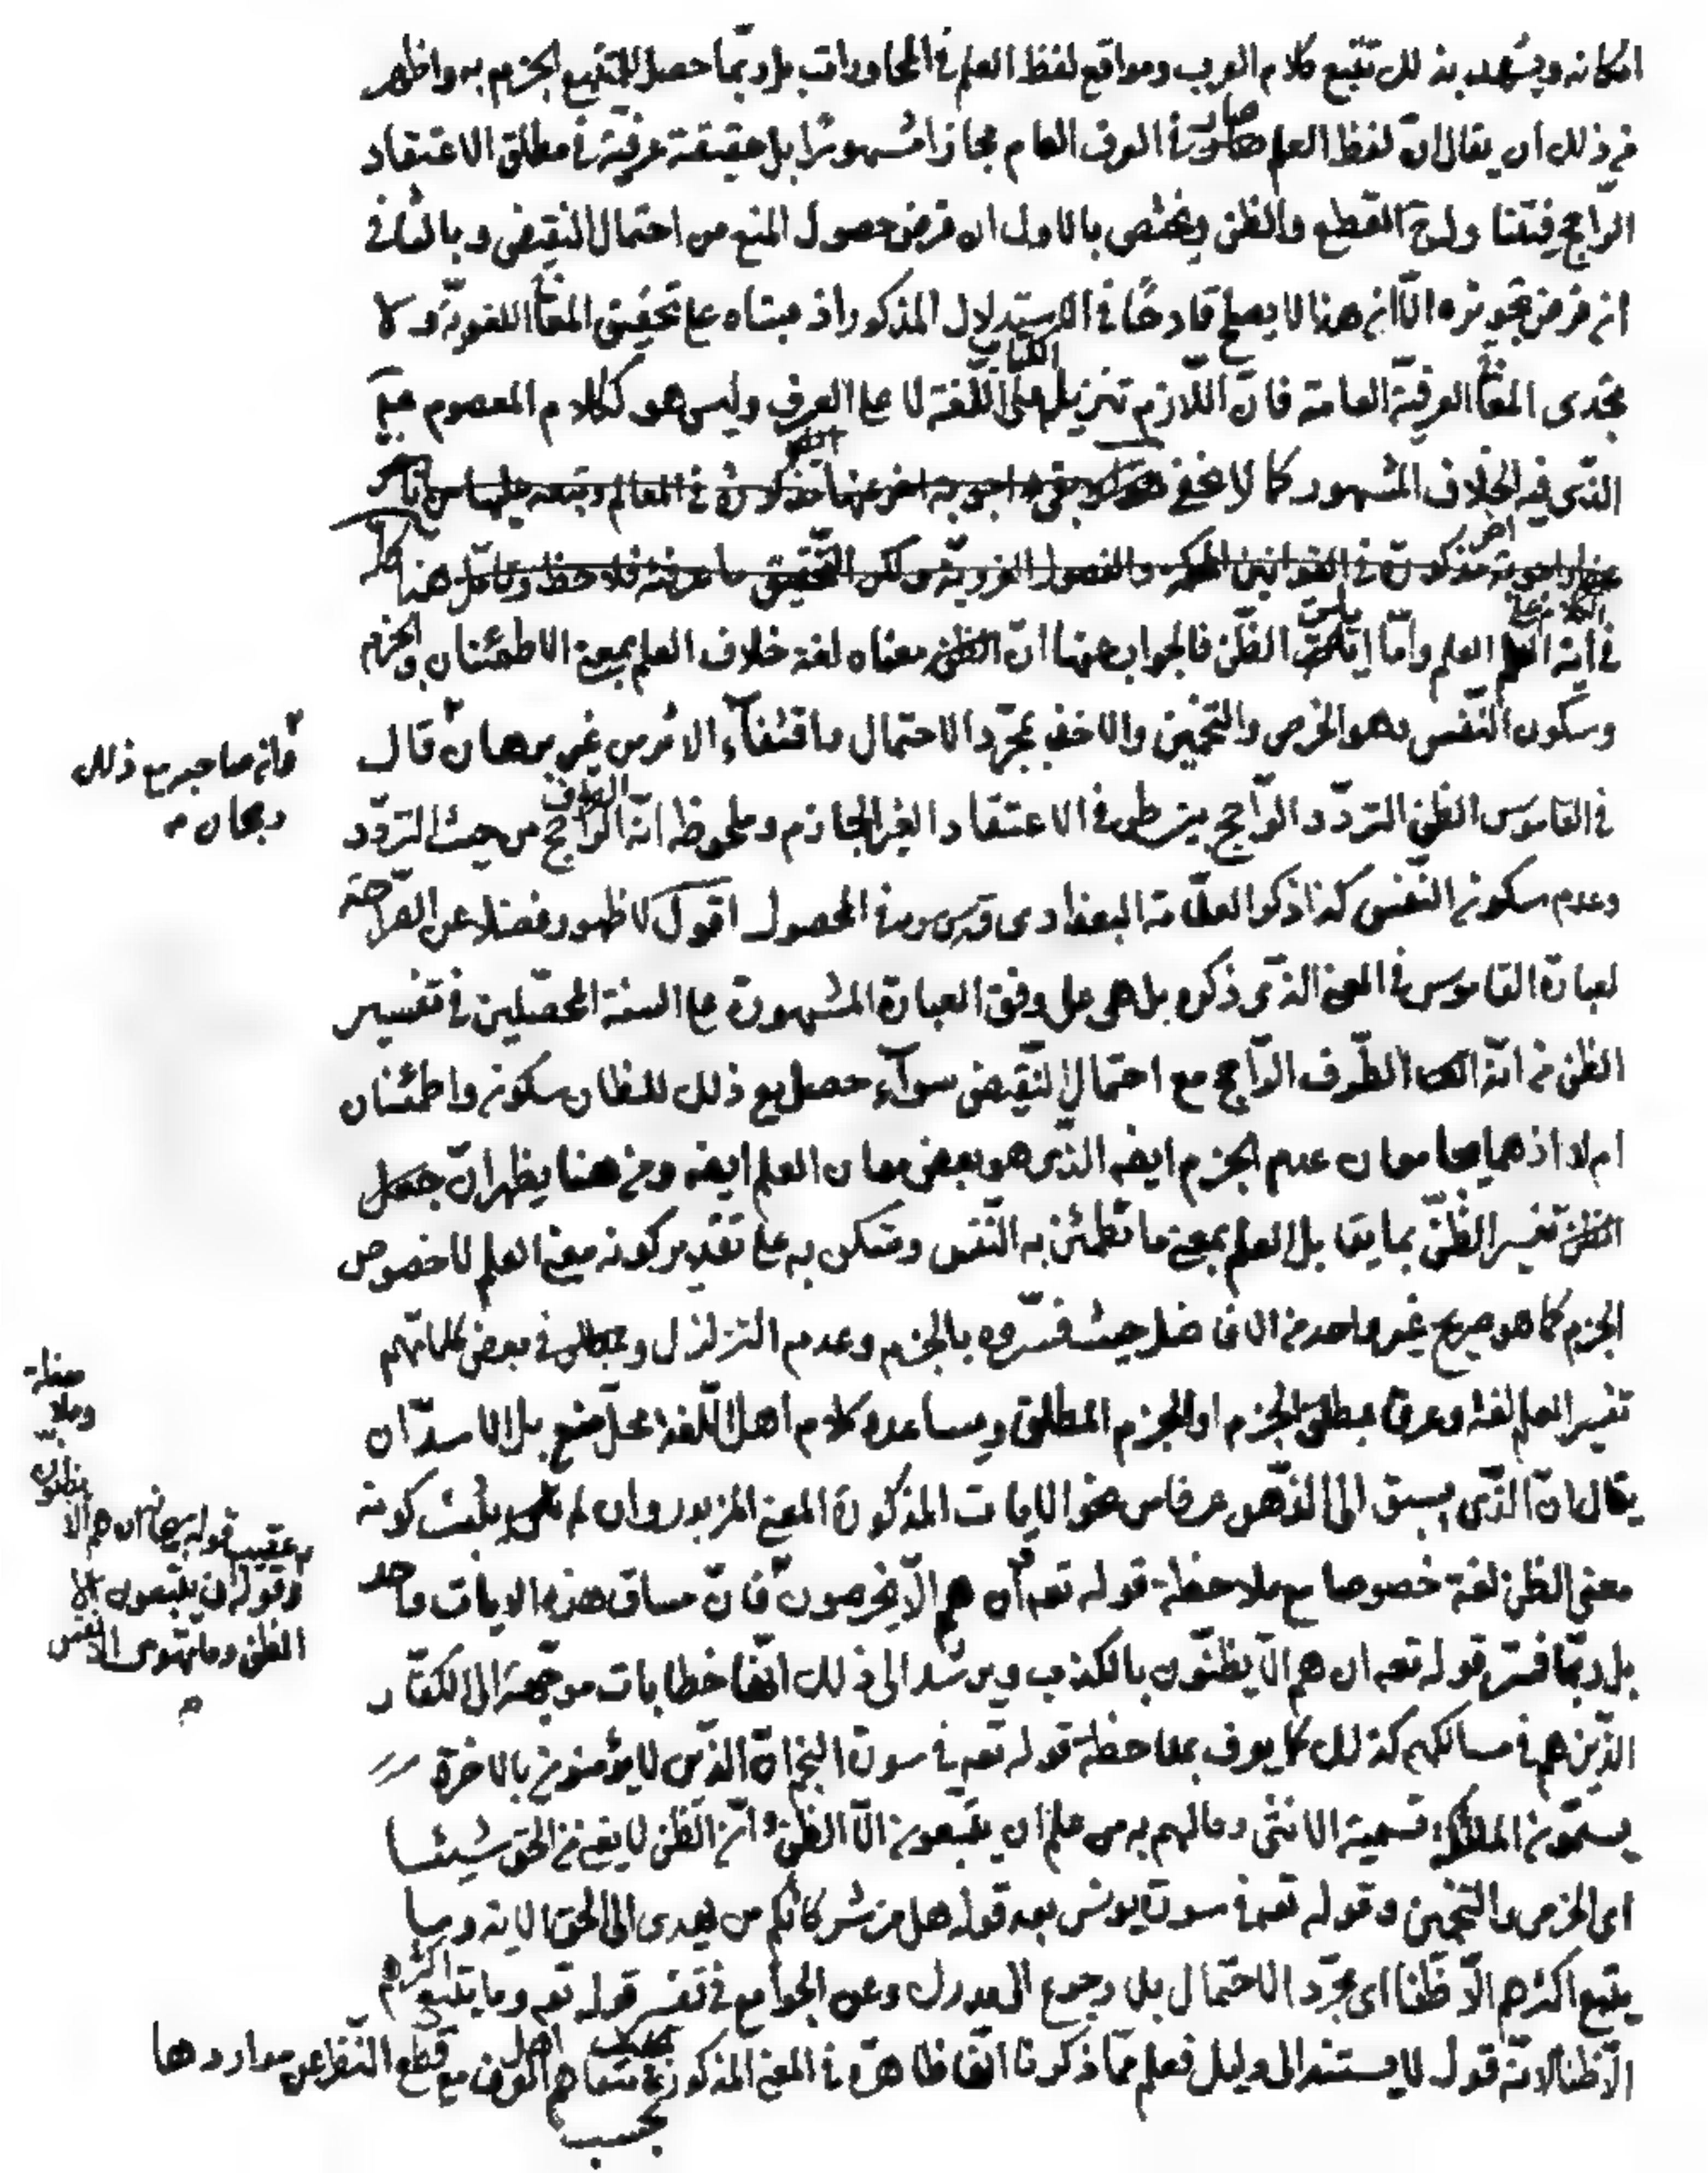 امكانه ويشهد بذلك تتبع كلام العرب ومواقع لفظ العلم في المحاورات بل ربّما حصل للمتتبع الجزم به واظهر
من ذلك ان يقال انّ لفظ العلم صار في العرف العام مجازا مشهورًا بل حقيقة عرفيّة في مطلق الاعتقاد
الرّاجح فيتناول القطع والظن ويختص بالاول ان فرض حصول المنع من احتمال النقيض وبالثّاني
ان فرض تجويزه الّا ان هذا لا يصلح قادحًا في الاستدلال المذكور اذ مبناه على تحقيق المعنى اللغويّة ولا
يجدى المعنى العرفيّة العامة فانّ اللّازم تنزيل الكتاب على اللّغة لا على العرف وليس هو ككلام المعصوم عليه
الذّى فيه الخلاف المشهور كما لا يخفى
هذا كله
في آية العلم واما آيات الظّن فالجواب عنها انّ الظن معناه لغة خلاف العلم بمعنى الاطمئنان والجزم
وسكون النّفس وهو الخرص والتّخمين والاخذ بمجرّد الاحتمال واقتفآء الاثر من غير برهان قال
في القاموس الظن التردّد الرّاجح بين طرفي الاعتقاد الغير الجازم وملحوظه انّه الطرف الرّاجح من حيث التردّد
وعدم سكون النّفس كذا ذكر العلّامة البغدادى قدس سره في المحصول اقول لا ظهور فضلا عن الصّراحة
لعبارة القاموس في المعنى الذّى ذكره بل هى على وفق العبارة المشهورة على السنة المحصّلين في تفسير
الظن من انّه الطّرف الرّاجح مع احتمال النّقيض سوآء حصل مع ذلك للظان سكون واطمئنان
ام لا اذ هما يجامعان عدم الجزم ايضه الذّى هو بعض معان العلم ايضه ومن هنا يظهر انّ جعل
تفسير الظّنّ بما يقابل العلم بمعنى ما تطمئنّ به النّفس وتسكن به على تقدير كونه معنى العلم لا خصوص
الجزم كما هو صريح غير واحد من الافاضل حيث فسّروه بالجزم وعدم التزلزل في بعض كلماتهم
تفسير العلم لغة وعرفا بمطلق الجزم او الجزم المطلق ومساعدة كلام اهل اللّغة محلّ منع بل الاسدّ ان
يقال انّ الذّى يسبق الى الذّهن عرفا من نحو الايات المذكورة المعنى المزبور وان لم يثبت كونه
معنى الظن لغة خصوصا مع ملاحظة قوله تعه ان هم الّا يخرصون فانّ مساق هذه الايات واحد
بل ربّما فسّر قوله تعه ان هم الّا يظنّون بالكذب ويرشد الى ذلك انّها خطابات موجّهة الى الكفّار
الذّين هم في مسالكهم كذلك كما يعرف بملاحظة قوله تعه في سورة النجم انّ الذّين لا يؤمنون بالاخرة
يسمّون الملئكة تسمية الانثى وما لهم به من علم ان يتّبعون الّا الظّن وانّ الظّن لا يغنى من الحق شيئا
اى الخرص والتّخمين وقوله تعه في سورة يونس بعد قوله هل من شركائكم من يهدى الى الحق الاية وما
يتبع اكثرهم الّا ظنّا اى مجرّد الاحتمال بلا رجوع الى مدرك وعن الجوامع في تفسير قوله تعه وما يتّبع اكثرهم
الّا ظنا لانّه قول لا يستند الى دليل فعلم ممّا ذكرنا انّها ظاهرة في المعنى المذكور بحسب متفاهم اهل العرف مع قطع النّظر عن مواردها
وان صاحبه مع ذلك
رجحان
ملاحظة
عقيب قوله سبحانه ان هم الّا
يظنون
وقوله ان يتّبعون الا
الظن وما تهوى الانفس
بحسب